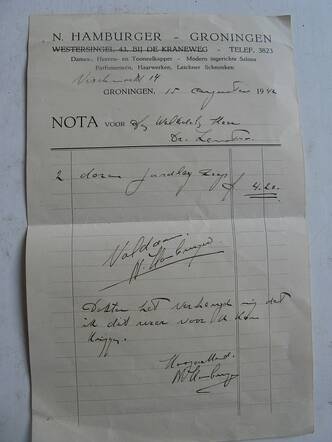 N. HAMBURGER - GRONINGEN
WESTERSINGEL 43, BIJ DE KRANEWEG - TELEF. 3823
Dames-, Heeren- en Tooneelkapper - Modern ingerichte Salons
Parfumerieën, Haarwerken, Leichner Schminken
Vischmarkt 14
GRONINGEN, 15 Augustus 1942
NOTA VOOR
Heer
Dr.
2 doozen Yardley Zeep f 4.20
Voldaan
N. Hamburger
Dokter het verheugd mij dat
ik dit weer voor U kon
krijgen
Hoogachtend
N Hamburger